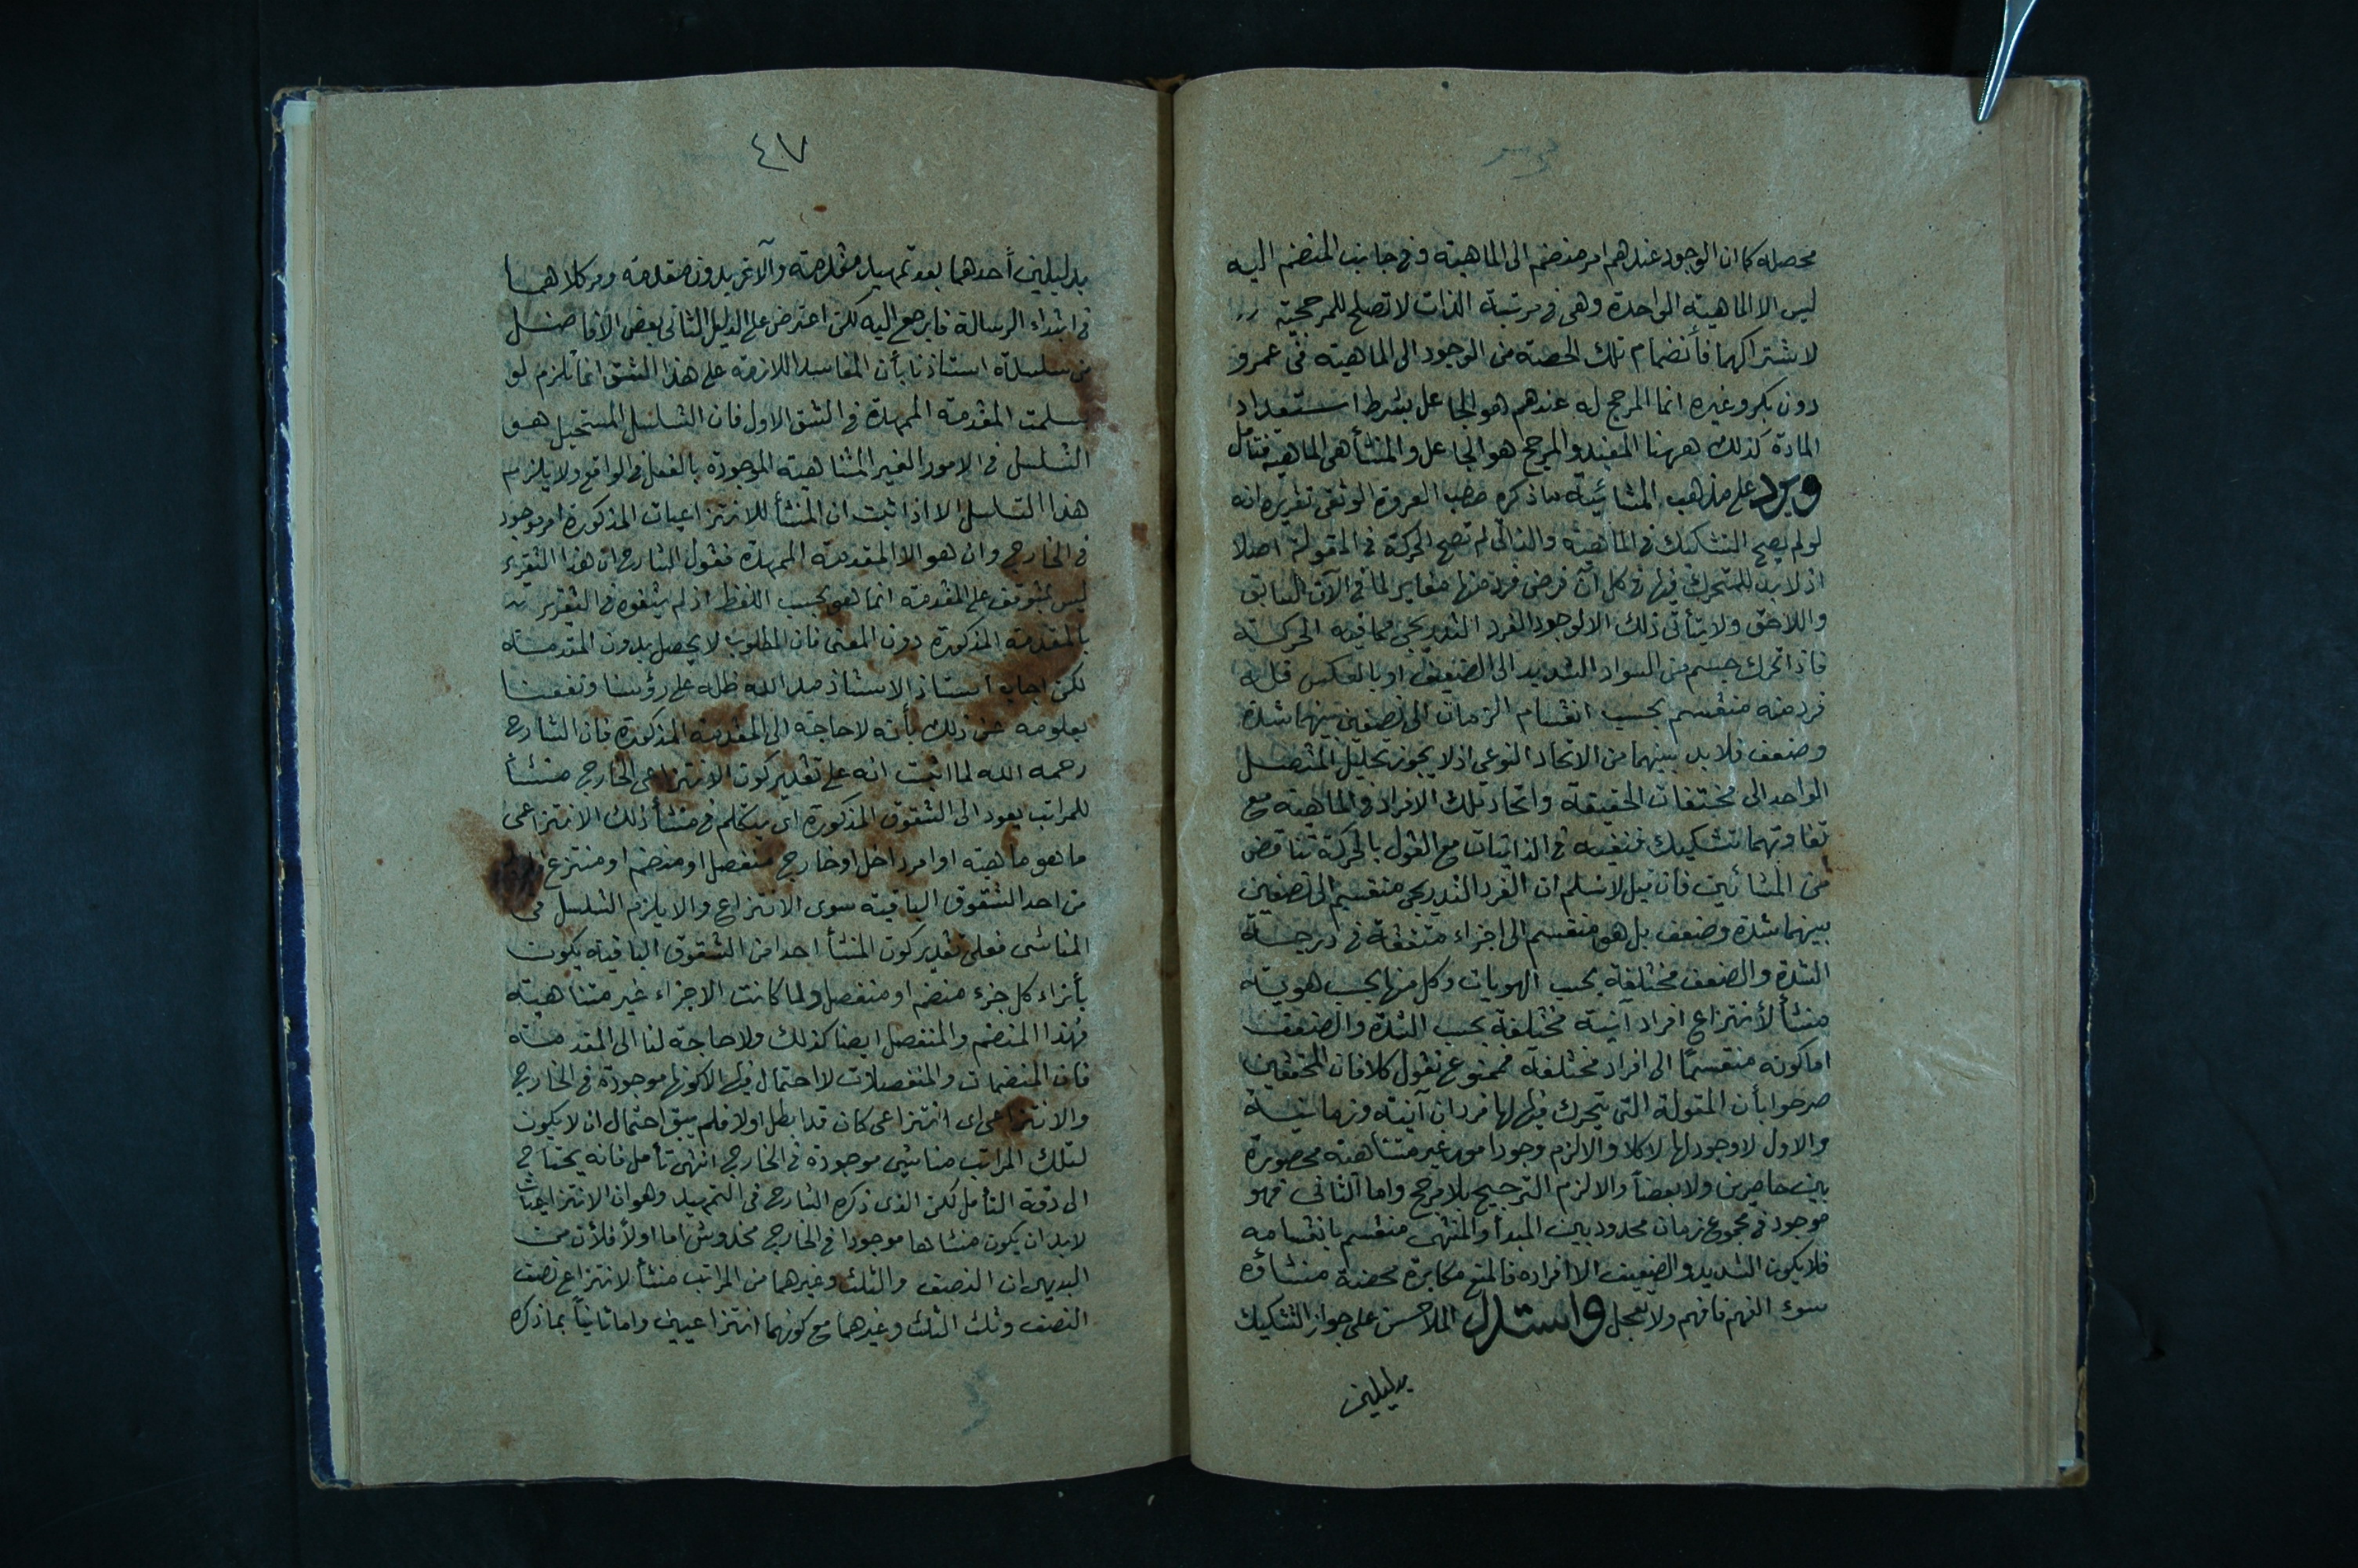 محصله كما ان الوجود عندهم امر منضم الى الماهية و فى جانب المنضم اليه
ليس الا الماهية الواحدة وهى فى مرتبة الذات لا تصلح للمرجحية
لاشتراكهما فأنضمام تلك الحصة من الوجود الى الماهية فى عمرو
دون بكر وغيره انما المرجح له عندهم هو الجاعل بشرط استعداد
المادة كذلك ههنا المفيد والمرجح هو الجاعل والمنشأ هى الماهية فتأمل
ويرد على مذهب المشائية ما ذكره صاحب العروة الوثقى تقريره انه
لو لم يصح التشكيك فى الماهية والذاتى لم تصح الحركة فى المقولة اصلا
اذ لابد للمتحرك فيها فى كل آن فرض فرد منها مغاير لما فى الآن السابق
واللاحق ولا يتأتى ذلك الا لوجود الفرد التدريجى مما فيه الحركة
فاذا تحرك جسم من السواد الشديد الى الضعيف او بالعكس فله
فرد منه منقسم بحسب انقسام الزمان الى نصفين بينهما شدة
وضعف فلابد بينهما من الاتحاد النوعى اذ لا يجوز تحليل المتصل
الواحد الى مختلفات الحقيقة واتحاد تلك الافراد فى الماهية مع
تفاوتهما تشكيك فنفيه فى الذاتيات مع القول بالحركة تناقض
من المشائين فان قيل لا نسلم ان الفرد التدريجى منقسم الى نصفين
بينهما شدة وضعف بل هو منقسم الى اجزاء متفقة فى درجة
الشدة والضعف مختلفة بحسب الهويات وكل منها بحسب هوية
منشأ لأنتزاع افراد آنية مختلفة بحسب الشدة والضعف
اما كونه منقسمًا الى افراد مختلفة فممنوع نقول كلا فان المحققين
صرحوا بأن المقولة التى يتحرك فيها لها فردان آنية وزمانية
والاول لا وجود لها لا كلا والا لزم وجود امور غير متناهية محصورة
بين حاصرين ولا بعضاً والا لزم الترجيح بلا مرجح واما الثانى فهو
موجود فى مجموع زمان محدود بين المبدأ والمنتهى منقسم بانقسامه
فلا يكون الشديد والضعيف الا افراده فالمنع مكابرة محضة منشاؤه
سوء الفهم فافهم ولا تعجل واستدل الملا حسن على جواز التشكيك
بدليلين
٤٧
بدليلين أحدهما بعد تمهيد مقدمة والآخر بدون مقدمة ومر كلاهما
فى ابتداء الرسالة فليرجع اليه لكن اعترض على الدليل الثانى بعض الافاضل
من سلسلة استاذنا بأن المفاسد اللازمة على هذا الشق انما تلزم لو
سلمت المقدمة الممهدة فى الشق الاول فان التسلسل المستحيل هو
التسلسل فى الامور الغير المتناهية الموجودة بالفعل فى الواقع ولا يلزم
هذا التسلسل الا اذا ثبت ان المنشأ للانتزاعيات المذكورة امر موجود
فى الخارج وان هو الا المقدمة الممهدة فقول الشارح ان هذا التقرير
ليس بمتوقف على المقدمة انما هو بحسب اللفظ اذ لم يتفوه فى التقرير
بالمقدمة المذكورة دون المعنى فان المطلوب لا يحصل بدون المقدمة
لكن اجاب استاذ الاستاذ مد الله ظله على رؤسنا ونفعنا
بعلومه عن ذلك بأنه لا حاجة الى المقدمة المذكورة فان الشارح
رحمه الله لما اثبت انه على تقدير كون الانتزاعى الخارج منشأ
للمراتب يعود الى الشقوق المذكورة اى يتكلم فى منشأ ذلك الانتزاعى
ما هو ماهية او امر داخل او خارج منفصل او منضم او منتزع
من احد الشقوق الباقية سوى الانتزاع والا يلزم التسلسل فى
المناشى فعلى تقدير كون المنشأ احدا من الشقوق الباقية يكون
بأزاء كل جزء منضم او منفصل ولما كانت الاجزاء غير متناهية
فهذا المنضم والمنفصل ايضا كذلك ولا حاجة لنا الى المقدمة
فان المنضمات والمنفصلات لا احتمال فيها الا كونها موجودة فى الخارج
والانتزاعى اى انتزاعى كان قد ابطل اولا فلم يبق احتمال ان لا يكون
لتلك المراتب مناشى موجودة فى الخارج انتهى تأمل فانه يحتاج
الى دقة التأمل لكن الذى ذكره الشارح فى التمهيد وهو ان الانتزاعيات
لابد ان يكون منشاها موجودا فى الخارج مخدوش اما اولاً فلأن من
البديهى ان النصف والثلث وغيرهما من المراتب منشأ لانتزاع نصف
النصف وثلث الثلث وغيرهما مع كونهما انتزاعيين واما ثانياً بما ذكره